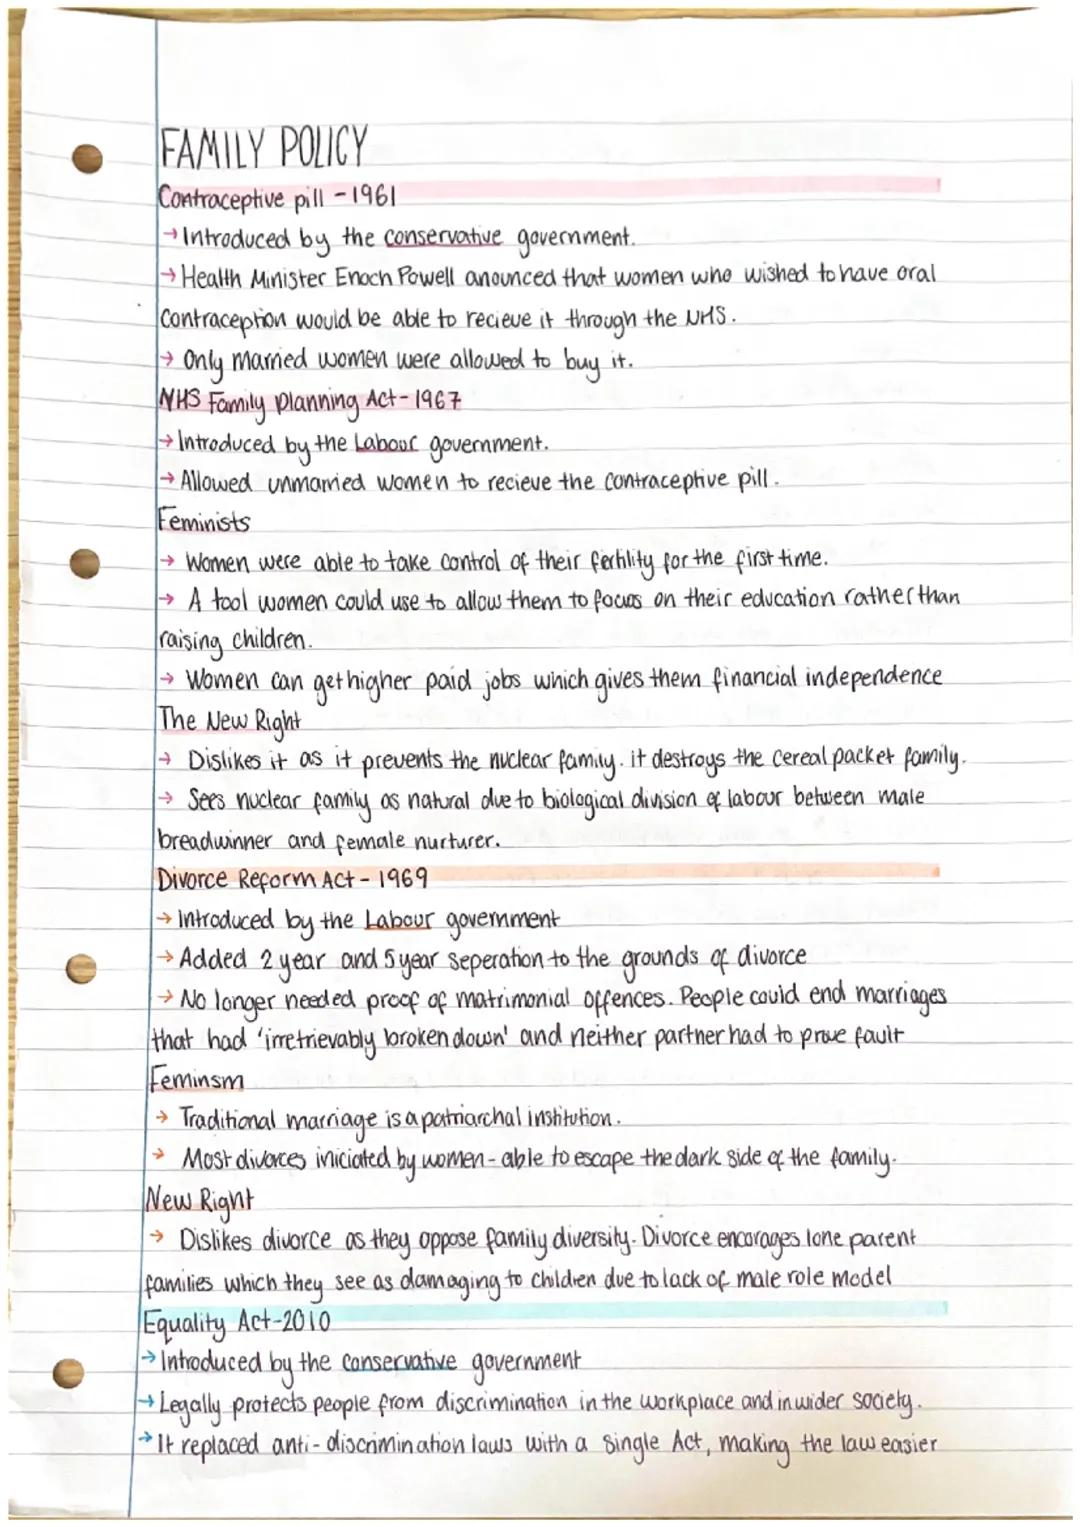 FAMILY POLICY
Contraceptive pill - 1961
→ Introduced by the conservative government.
→ Health Minister Enoch Powell anounced that women who wished to have oral
contraception would be able to recieve it through the NHS.
→ Only married women were allowed to buy it.
NHS Family Planning Act - 1967
→ Introduced by the Labour government.
→ Allowed unmarried women to recieve the contraceptive pill.
Feminists
→ Women were able to take control of their fertility for the first time.
→ A tool women could use to allow them to focus on their education rather than
raising children.
→ Women can get higher paid jobs which gives them financial independence
The New Right
→ Dislikes it as it prevents the nuclear family. it destroys the cereal packet family.
→ Sees nuclear family as natural due to biological division of labour between male
breadwinner and female nurturer.
Divorce Reform Act - 1969
→ Introduced by the Labour government
→ Added 2 year and 5 year seperation to the grounds of divorce
→ No longer needed proof of matrimonial offences. People could end marriages
that had 'irretrievably broken down' and neither partner had to prove fault
Feminsm
→ Traditional marriage is a patriarchal institution.
→ Most divorces iniciated by women - able to escape the dark side of the family.
New Right
→ Dislikes divorce as they oppose family diversity. Divorce encorages lone parent
families which they see as damaging to children due to lack of male role model
Equality Act - 2010
→ Introduced by the conservative government
→ Legally protects people from discrimination in the workplace and in wider society.
→ It replaced anti-discrimination laws with a single Act, making the law easier